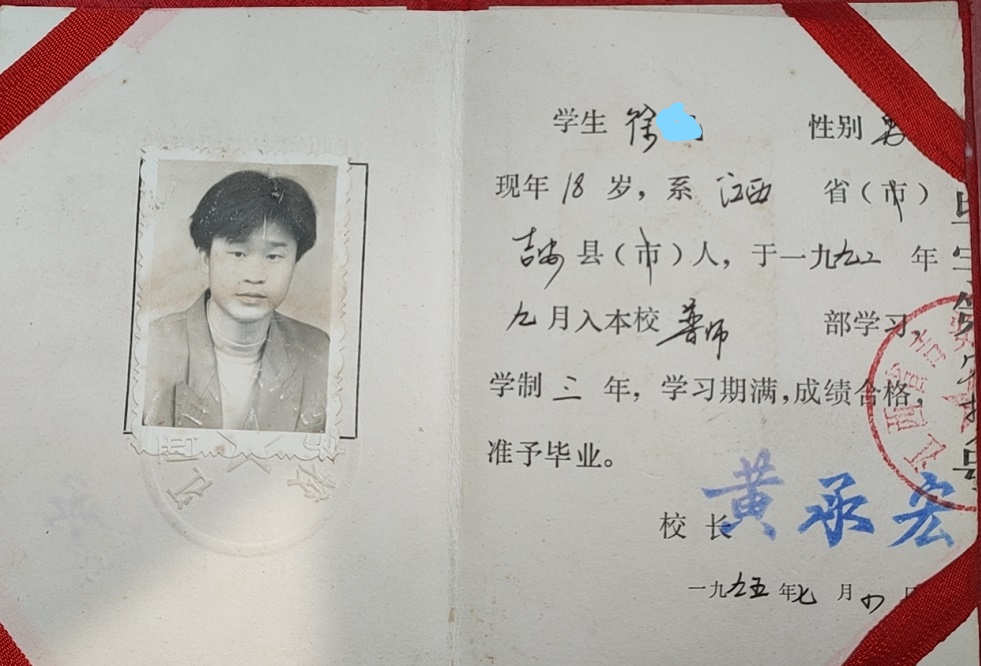 学生 徐 性别 男
现年 18 岁，系 江西 省（市）
吉安 县（市）人，于一九九二 年
九 月入本校 普师 部学习，
学制 三 年，学习期满，成绩合格，
准予毕业。
校 长 黄承宏
一九九五 年 七 月
江西省吉